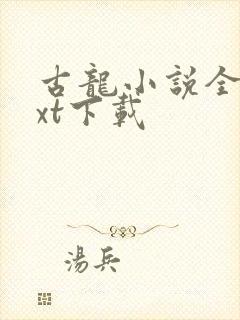 古龍小說全
xt下載
湯兵